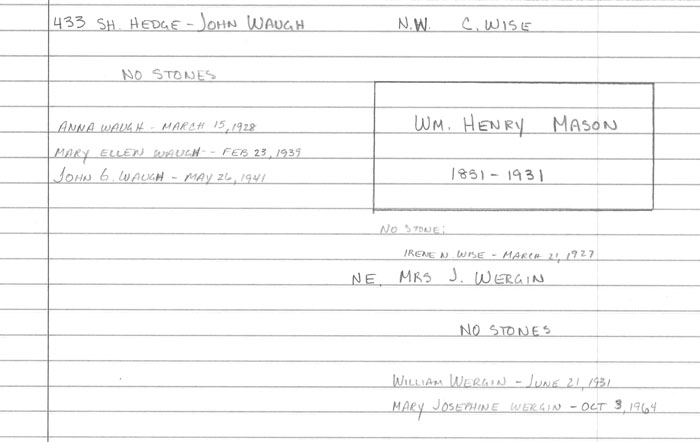 433 SH. HEDGE - JOHN WAUGH
NO STONES
ANNA WAUGH - MARCH 15, 1928
MARY ELLEN WAUGH - FEB 23, 1939
JOHN G. WAUGH - MAY 26, 1941
N.W. C. WISE
WM. HENRY MASON
1851 - 1931
NO STONE:
IRENE N. WISE - MARCH 21, 1927
NE. MRS J. WERGIN
NO STONES
WILLIAM WERGIN - JUNE 21, 1931
MARY JOSEPHINE WERGIN - OCT 3, 1964